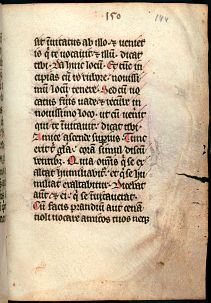 150
sit inuitatus ab illo. & uenies
is q̄ te uocauit & illū. dicat
tibi. Da huic locū. Et tūc in
cipias cū rubore nouissi
mū locū tenere. Sed cū uo
catus fuis uade & recūbe in
nouissimo loco. ut cū uenit
qui te īuitauit. dicat tibi.
Amice ascende supius. Tunc
erit t̄ gl̄a. corā simul discū
bentibȝ. Quia om̄s q̄ se ex
altat humiliabit᷑. et q̄ se hu
miliat exaltabitur. Dicebat
aut̄ & ei. q̄ se īuitauerat.
Cū facis prandiū aut cenā
noli uocare amicos tuos neqȝ